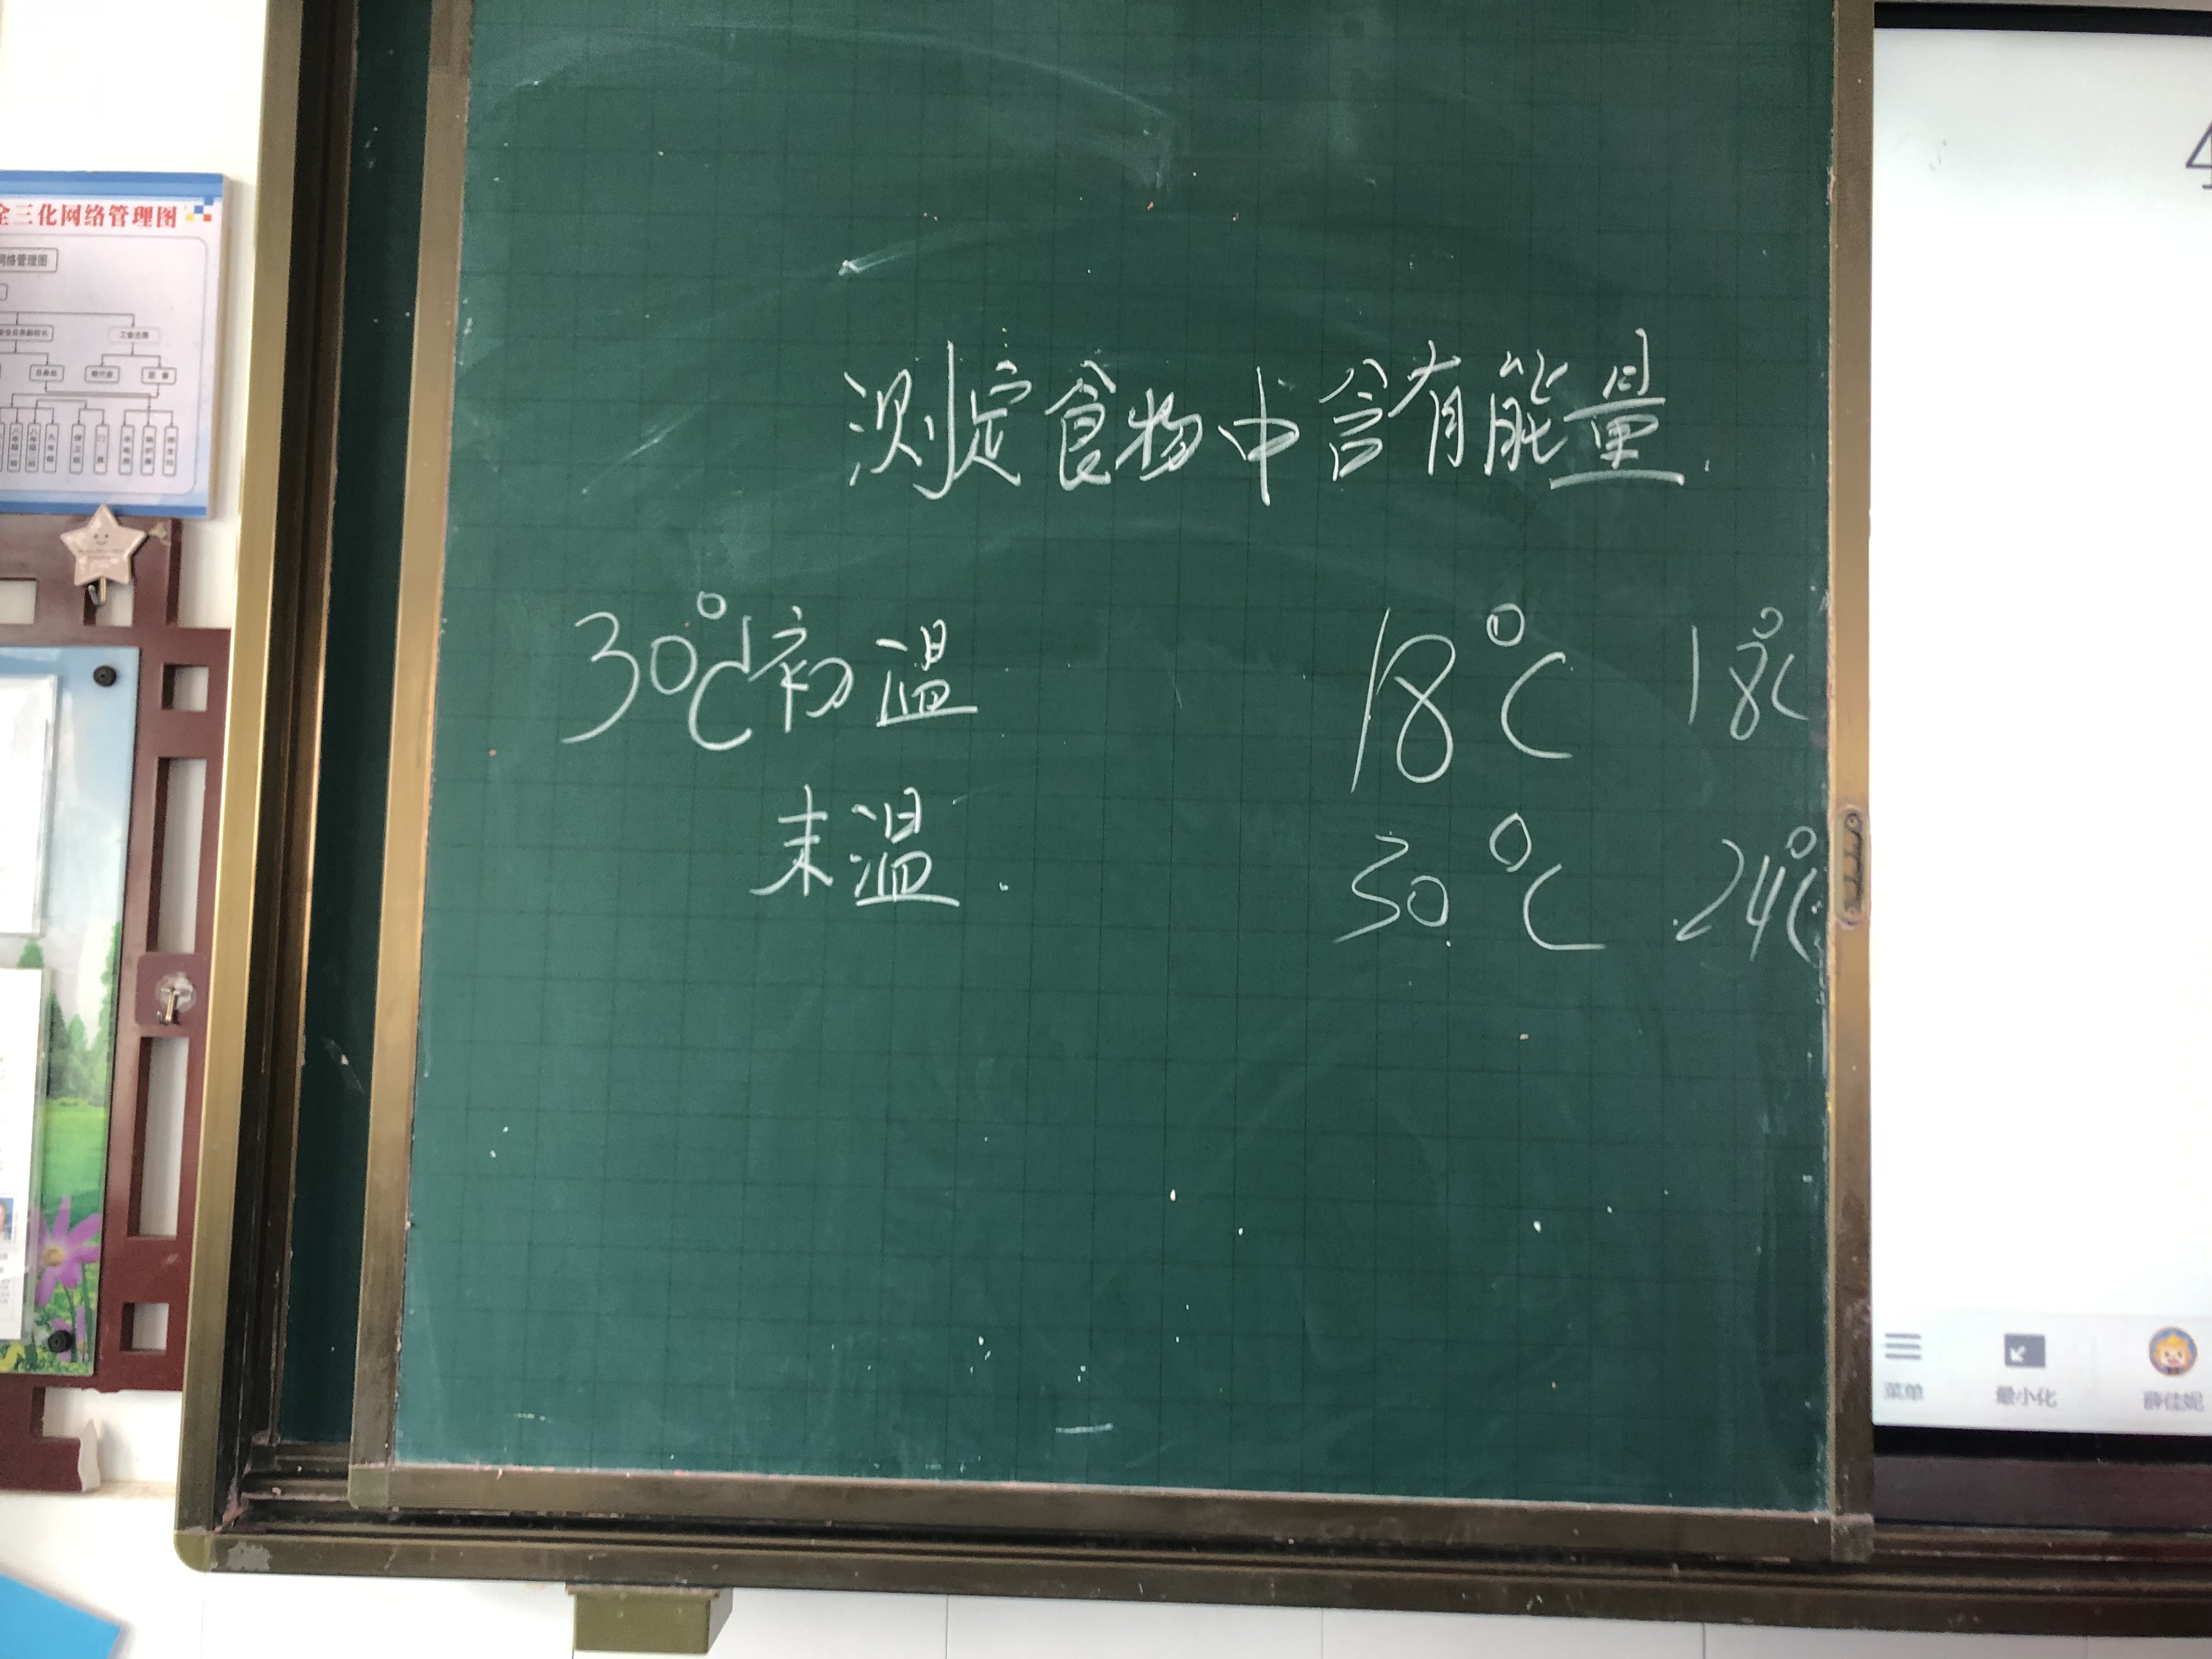 全三化网络管理图
网络管理图
测定食物中含有能量.
30°C初温 18°C 18°C
末温. 30°C 24°C
菜单 最小化 薛佳妮